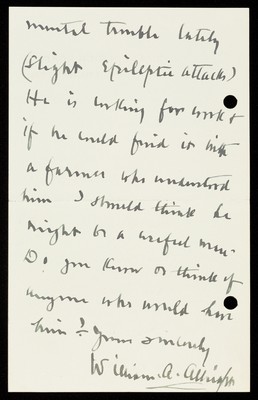 mental trouble lately
(slight epileptic attacks)
He is looking for work &
if he could find it with
a farmer who understood
him I should think he
might be a useful man.
Do you know or think of
anyone who would have
him? Yours sincerely
William. A.